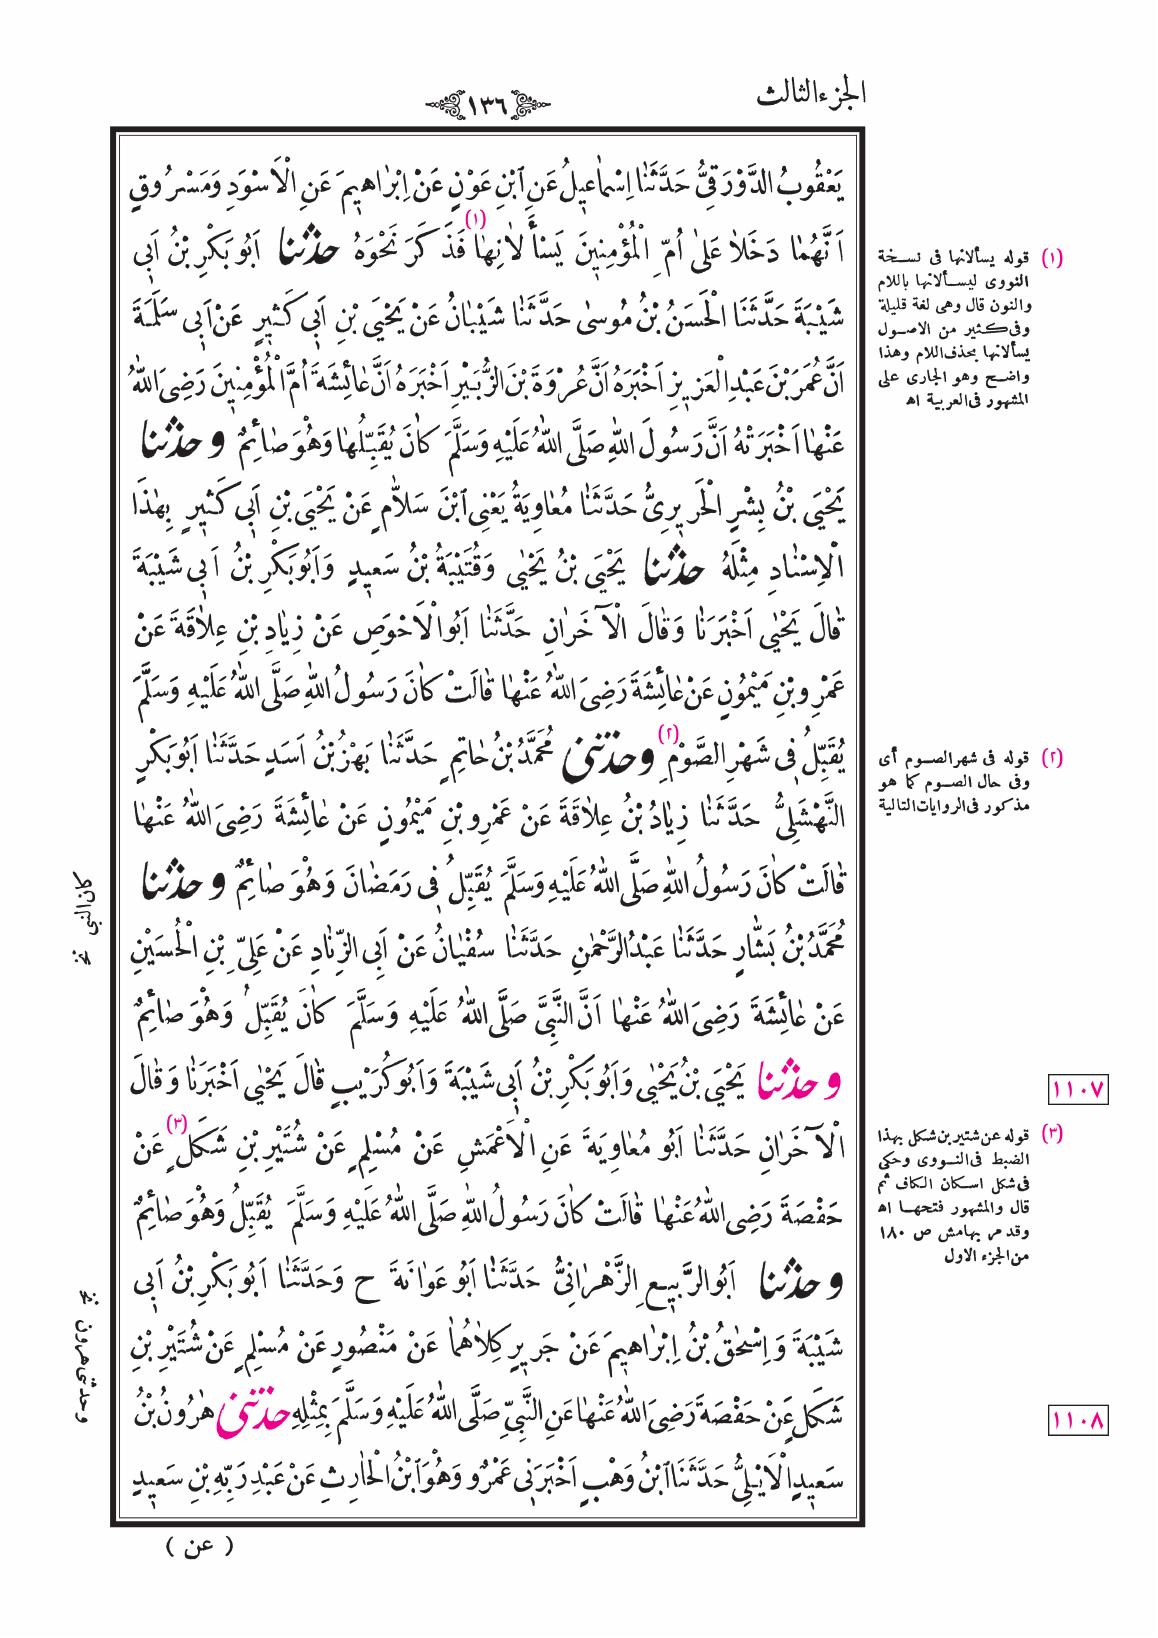 الجزء الثالث
١٣٦
يَعْقُوبُ الدَّوْرَقِىُّ حَدَّثَنَا اِسْمَاعِيلُ عَنِ ابْنِ عَوْنٍ عَنْ اِبْرَاهِيمَ عَنِ الْاَسْوَدِ وَمَسْرُوقٍ
اَنَّهُمَا دَخَلَا عَلَى اُمِّ الْمُؤْمِنِينَ يَسْأَلَانِهَا (١) فَذَكَرَ نَحْوَهُ حدثنا اَبُو بَكْرِ بْنُ اَبِى
شَيْبَةَ حَدَّثَنَا الْحَسَنُ بْنُ مُوسَى حَدَّثَنَا شَيْبَانُ عَنْ يَحْيَى بْنِ اَبِى كَثِيرٍ عَنْ اَبِى سَلَمَةَ
اَنَّ عُمَرَ بْنَ عَبْدِ الْعَزِيزِ اَخْبَرَهُ اَنَّ عُرْوَةَ بْنَ الزُّبَيْرِ اَخْبَرَهُ اَنَّ عَائِشَةَ اُمَّ الْمُؤْمِنِينَ رَضِىَ اللهُ
عَنْهَا اَخْبَرَتْهُ اَنَّ رَسُولَ اللهِ صَلَّى اللهُ عَلَيْهِ وَسَلَّمَ كَانَ يُقَبِّلُهَا وَهُوَ صَائِمٌ وحدثنا
يَحْيَى بْنُ بِشْرٍ الْحَرِيرِىُّ حَدَّثَنَا مُعَاوِيَةُ يَعْنِى ابْنَ سَلَّامٍ عَنْ يَحْيَى بْنِ اَبِى كَثِيرٍ بِهٰذَا
الْاِسْنَادِ مِثْلَهُ حدثنا يَحْيَى بْنُ يَحْيَى وَقُتَيْبَةُ بْنُ سَعِيدٍ وَاَبُو بَكْرِ بْنُ اَبِى شَيْبَةَ
قَالَ يَحْيَى اَخْبَرَنَا وَقَالَ الْآخَرَانِ حَدَّثَنَا اَبُو الْاَحْوَصِ عَنْ زِيَادِ بْنِ عِلَاقَةَ عَنْ
عَمْرِو بْنِ مَيْمُونٍ عَنْ عَائِشَةَ رَضِىَ اللهُ عَنْهَا قَالَتْ كَانَ رَسُولُ اللهِ صَلَّى اللهُ عَلَيْهِ وَسَلَّمَ
يُقَبِّلُ فِى شَهْرِ الصَّوْمِ (٢) وحدثنى مُحَمَّدُ بْنُ حَاتِمٍ حَدَّثَنَا بَهْزُ بْنُ اَسَدٍ حَدَّثَنَا اَبُو بَكْرٍ
النَّهْشَلِىُّ حَدَّثَنَا زِيَادُ بْنُ عِلَاقَةَ عَنْ عَمْرِو بْنِ مَيْمُونٍ عَنْ عَائِشَةَ رَضِىَ اللهُ عَنْهَا
قَالَتْ كَانَ رَسُولُ اللهِ صَلَّى اللهُ عَلَيْهِ وَسَلَّمَ يُقَبِّلُ فِى رَمَضَانَ وَهُوَ صَائِمٌ وحدثنا
مُحَمَّدُ بْنُ بَشَّارٍ حَدَّثَنَا عَبْدُ الرَّحْمٰنِ حَدَّثَنَا سُفْيَانُ عَنْ اَبِى الزِّنَادِ عَنْ عَلِىِّ بْنِ الْحُسَيْنِ
عَنْ عَائِشَةَ رَضِىَ اللهُ عَنْهَا اَنَّ النَّبِىَّ صَلَّى اللهُ عَلَيْهِ وَسَلَّمَ كَانَ يُقَبِّلُ وَهُوَ صَائِمٌ
وحدثنا يَحْيَى بْنُ يَحْيَى وَاَبُو بَكْرِ بْنُ اَبِى شَيْبَةَ وَاَبُو كُرَيْبٍ قَالَ يَحْيَى اَخْبَرَنَا وَقَالَ
الْآخَرَانِ حَدَّثَنَا اَبُو مُعَاوِيَةَ عَنِ الْاَعْمَشِ عَنْ مُسْلِمٍ عَنْ شُتَيْرِ بْنِ شَكَلٍ (٣) عَنْ
حَفْصَةَ رَضِىَ اللهُ عَنْهَا قَالَتْ كَانَ رَسُولُ اللهِ صَلَّى اللهُ عَلَيْهِ وَسَلَّمَ يُقَبِّلُ وَهُوَ صَائِمٌ
وحدثنا اَبُو الرَّبِيعِ الزَّهْرَانِىُّ حَدَّثَنَا اَبُو عَوَانَةَ ح وَحَدَّثَنَا اَبُو بَكْرِ بْنُ اَبِى
شَيْبَةَ وَاِسْحٰقُ بْنُ اِبْرَاهِيمَ عَنْ جَرِيرٍ كِلَاهُمَا عَنْ مَنْصُورٍ عَنْ مُسْلِمٍ عَنْ شُتَيْرِ بْنِ
شَكَلٍ عَنْ حَفْصَةَ رَضِىَ اللهُ عَنْهَا عَنِ النَّبِىِّ صَلَّى اللهُ عَلَيْهِ وَسَلَّمَ بِمِثْلِهِ حدثنى هٰرُونُ بْنُ
سَعِيدٍ الْاَيْلِىُّ حَدَّثَنَا ابْنُ وَهْبٍ اَخْبَرَنِى عَمْرٌو وَهُوَ ابْنُ الْحَارِثِ عَنْ عَبْدِ رَبِّهِ بْنِ سَعِيدٍ
( عن )
(١) قوله يسألانها فى نسخة
النووى ليسألانها باللام
والنون قال وهى لغة قليلة
وفى كثير من الاصول
يسألانها بحذف اللام وهذا
واضح وهو الجارى على
المشهور فى العربية اه
(٢) قوله فى شهر الصوم أى
وفى حال الصوم كما هو
مذكور فى الروايات التالية
١١٠٧
(٣) قوله عن شتير بن شكل بهذا
الضبط فى النووى وحكى
فى شكل اسكان الكاف ثم
قال والمشهور فتحها اه
وقد مر بهامش ص ١٨٠
من الجزء الاول
١١٠٨
كان النبى نخ
وحدثنى هرون نخ